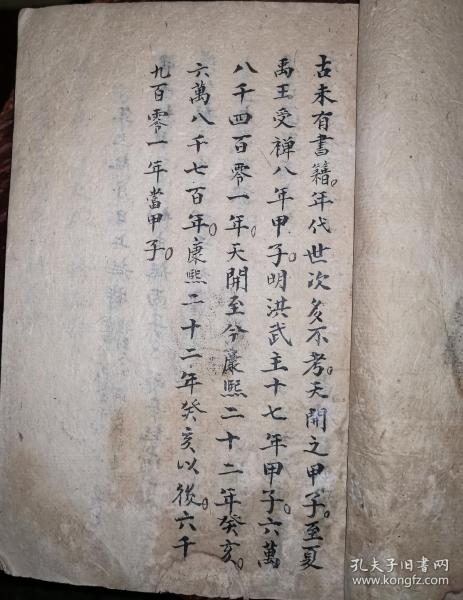 古未有書籍。年代世次多不考。天開之甲子。至夏
禹王受禅八年甲子。明洪武主十七年甲子。六萬
八千四百零一年。天開至今康熙二十二年癸亥。
六萬八千七百年。康熙二十二年癸亥以後。六千
九百零一年當甲子。
孔夫子旧书网
www.kongfz.com